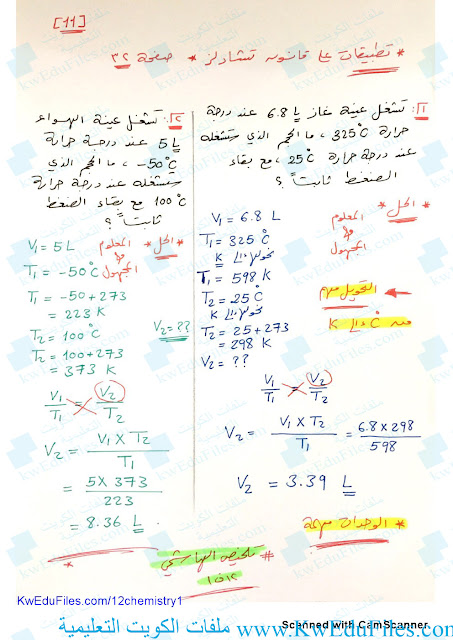 [11]
* تطبيقات على قانون تشارلز * صفحة ٣٢
١: تشغل عينة غاز 6.8 L عند درجة
حرارة 325°C ، ما الحجم الذي ستشغله
عند درجة حرارة 25°C ، مع بقاء
الضغط ثابتاً ؟
* الحل *
المعلوم
و
المجهول
V1 = 6.8 L
T1 = 325°C
K
T1 = 598 K
T2 = 25°C
K
T2 = 25 + 273
= 298 K
V2 = ??
التحويل مهم
من °C إلى K
V1/T1 = V2/T2
V2 = V1 × T2 / T1 = 6.8 × 298 / 598
V2 = 3.39 L
* الوحدات مهمة
٢: تشغل عينة الهواء
5 L عند درجة حرارة
-50°C ، ما الحجم الذي
ستشغله عند درجة حرارة
100°C مع بقاء الضغط
ثابتاً ؟
* الحل *
المعلوم
و
المجهول
V1 = 5 L
T1 = -50°C
T1 = -50 + 273
= 223 K
T2 = 100°C
V2 = ??
T2 = 100 + 273
= 373 K
V1/T1 = V2/T2
V2 = V1 × T2 / T1
= 5 × 373 / 223
= 8.36 L
# تلخيص الهاشمي
KwEduFiles.com/12chemistry1
Scanned with CamScanner
www.KwEduFiles.com ملفات الكويت التعليمية